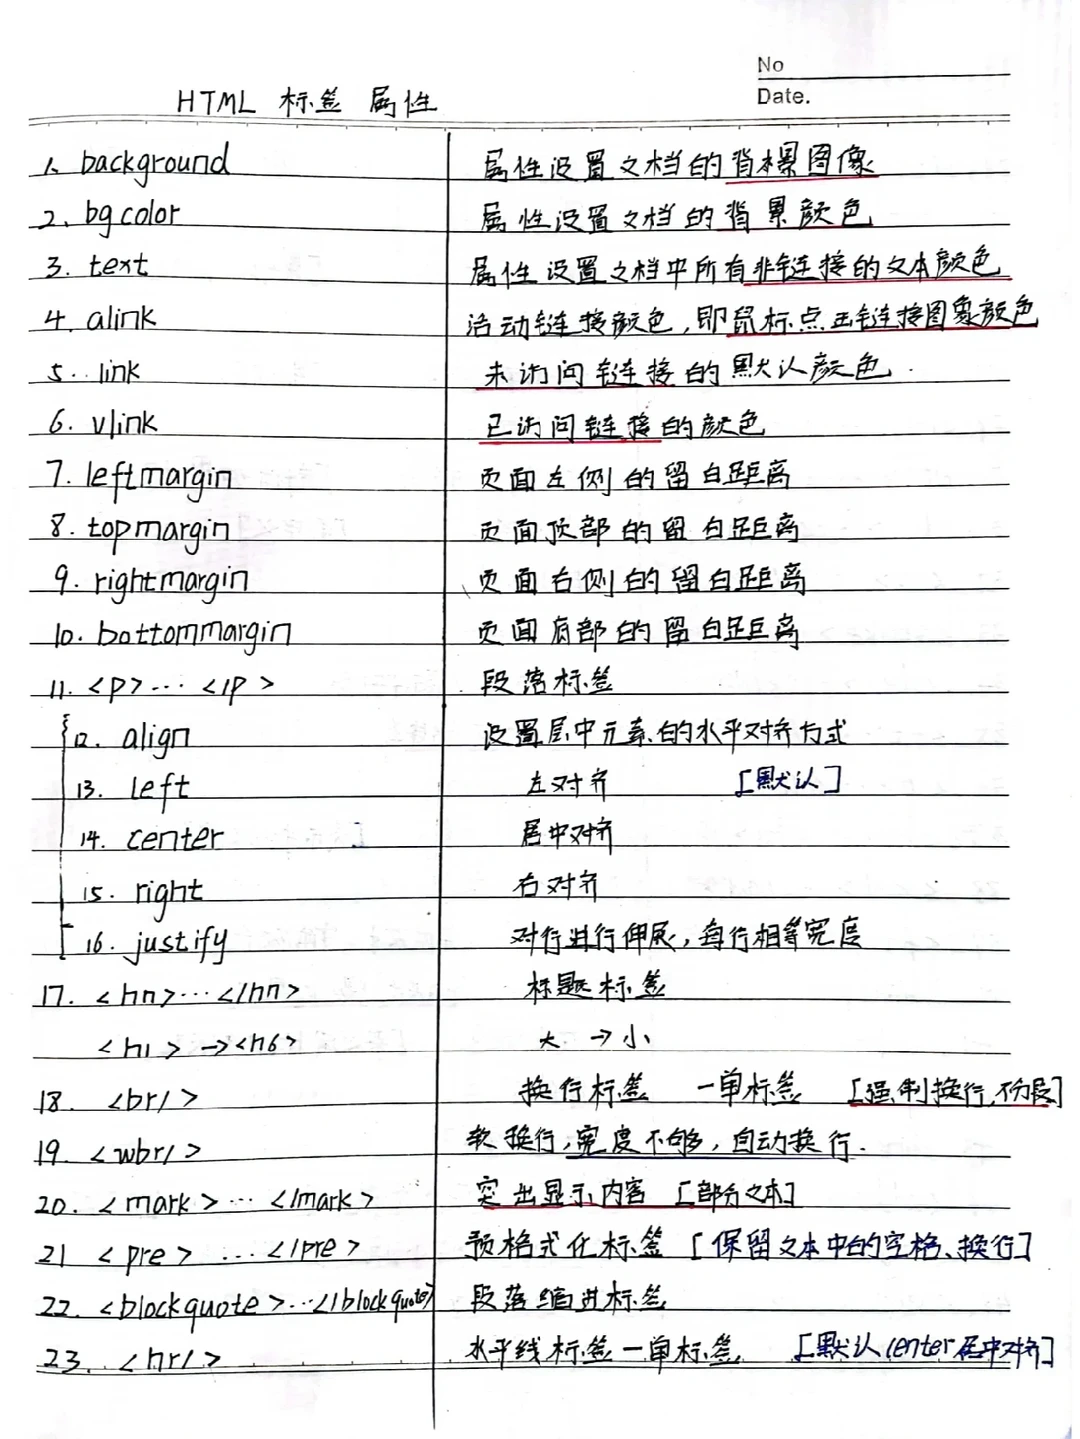 No
Date.
HTML 标签 属性
1. background 属性设置文档的背景图像
2. bgcolor 属性设置文档的背景颜色
3. text 属性设置文档中所有非链接的文本颜色
4. alink 活动链接颜色,即鼠标点击链接图象颜色
5. link 未访问链接的默认颜色.
6. vlink 已访问链接的颜色
7. leftmargin 页面左侧的留白距离
8. topmargin 页面顶部的留白距离
9. rightmargin 页面右侧的留白距离
10. bottommargin 页面底部的留白距离
11. <p>...</p> 段落标签
12. align 设置层中元素的水平对齐方式
13. left 左对齐 [默认]
14. center 居中对齐
15. right 右对齐
16. justify 对行进行伸展,每行相等宽度
17. <hn>...</hn> 标题标签
<h1> → <h6> 大 → 小
18. <br/> 换行标签 一单标签 [强制换行,不分段]
19. <wbr/> 软换行,宽度不够,自动换行.
20. <mark>...</mark> 突出显示内容 [部分文本]
21 <pre>...</pre> 预格式化标签 [保留文本中的空格、换行]
22. <blockquote>...</blockquote> 段落缩进标签
23. <hr/> 水平线标签一单标签 [默认center居中对齐]